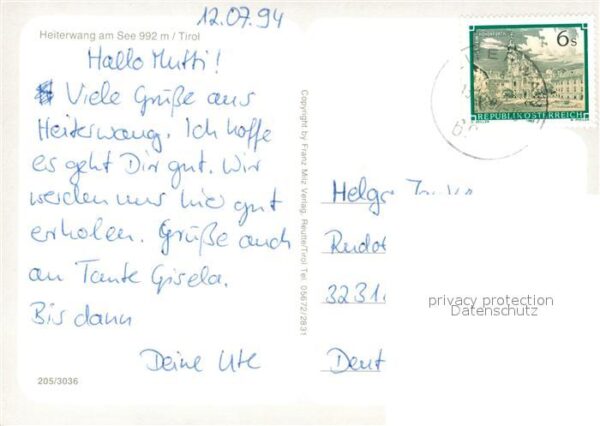 12.07.94
Heiterwang am See 992 m / Tirol
Hallo Mutti!
Viele Grüße aus
Heiterwang. Ich hoffe
es geht Dir gut. Wir
werden uns hier gut
erholen. Grüße auch
an Tante Gisela.
Bis dann
Deine Ute
205/3036
Copyright by Franz Milz Verlag, Reutte/Tirol Tel. 05672/2831
6s
REPUBLIK ÖSTERREICH
Helga
Rudol
3231
Deut
privacy protection
Datenschutz